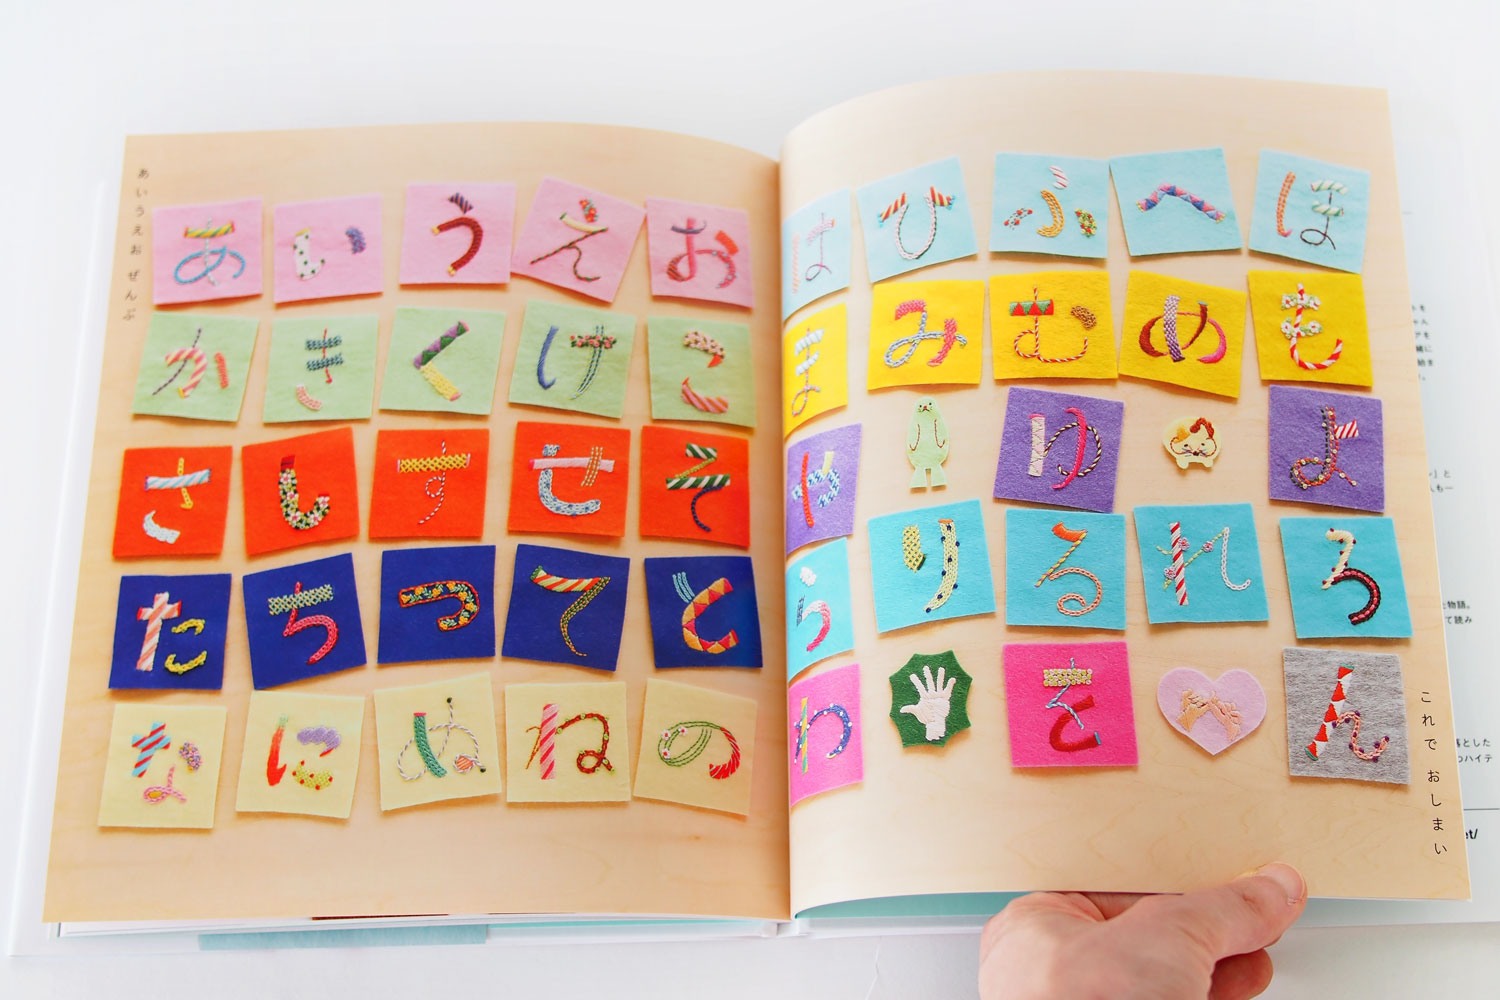 あいうえお ぜんぶ
あいうえお
かきくけこ
さしすせそ
たちつてと
なにぬねの
はひふへほ
まみむめも
やゆよ
らりるれろ
わをん
これで おしまい
た物語。
て読み
落とした
つハイテ
et/